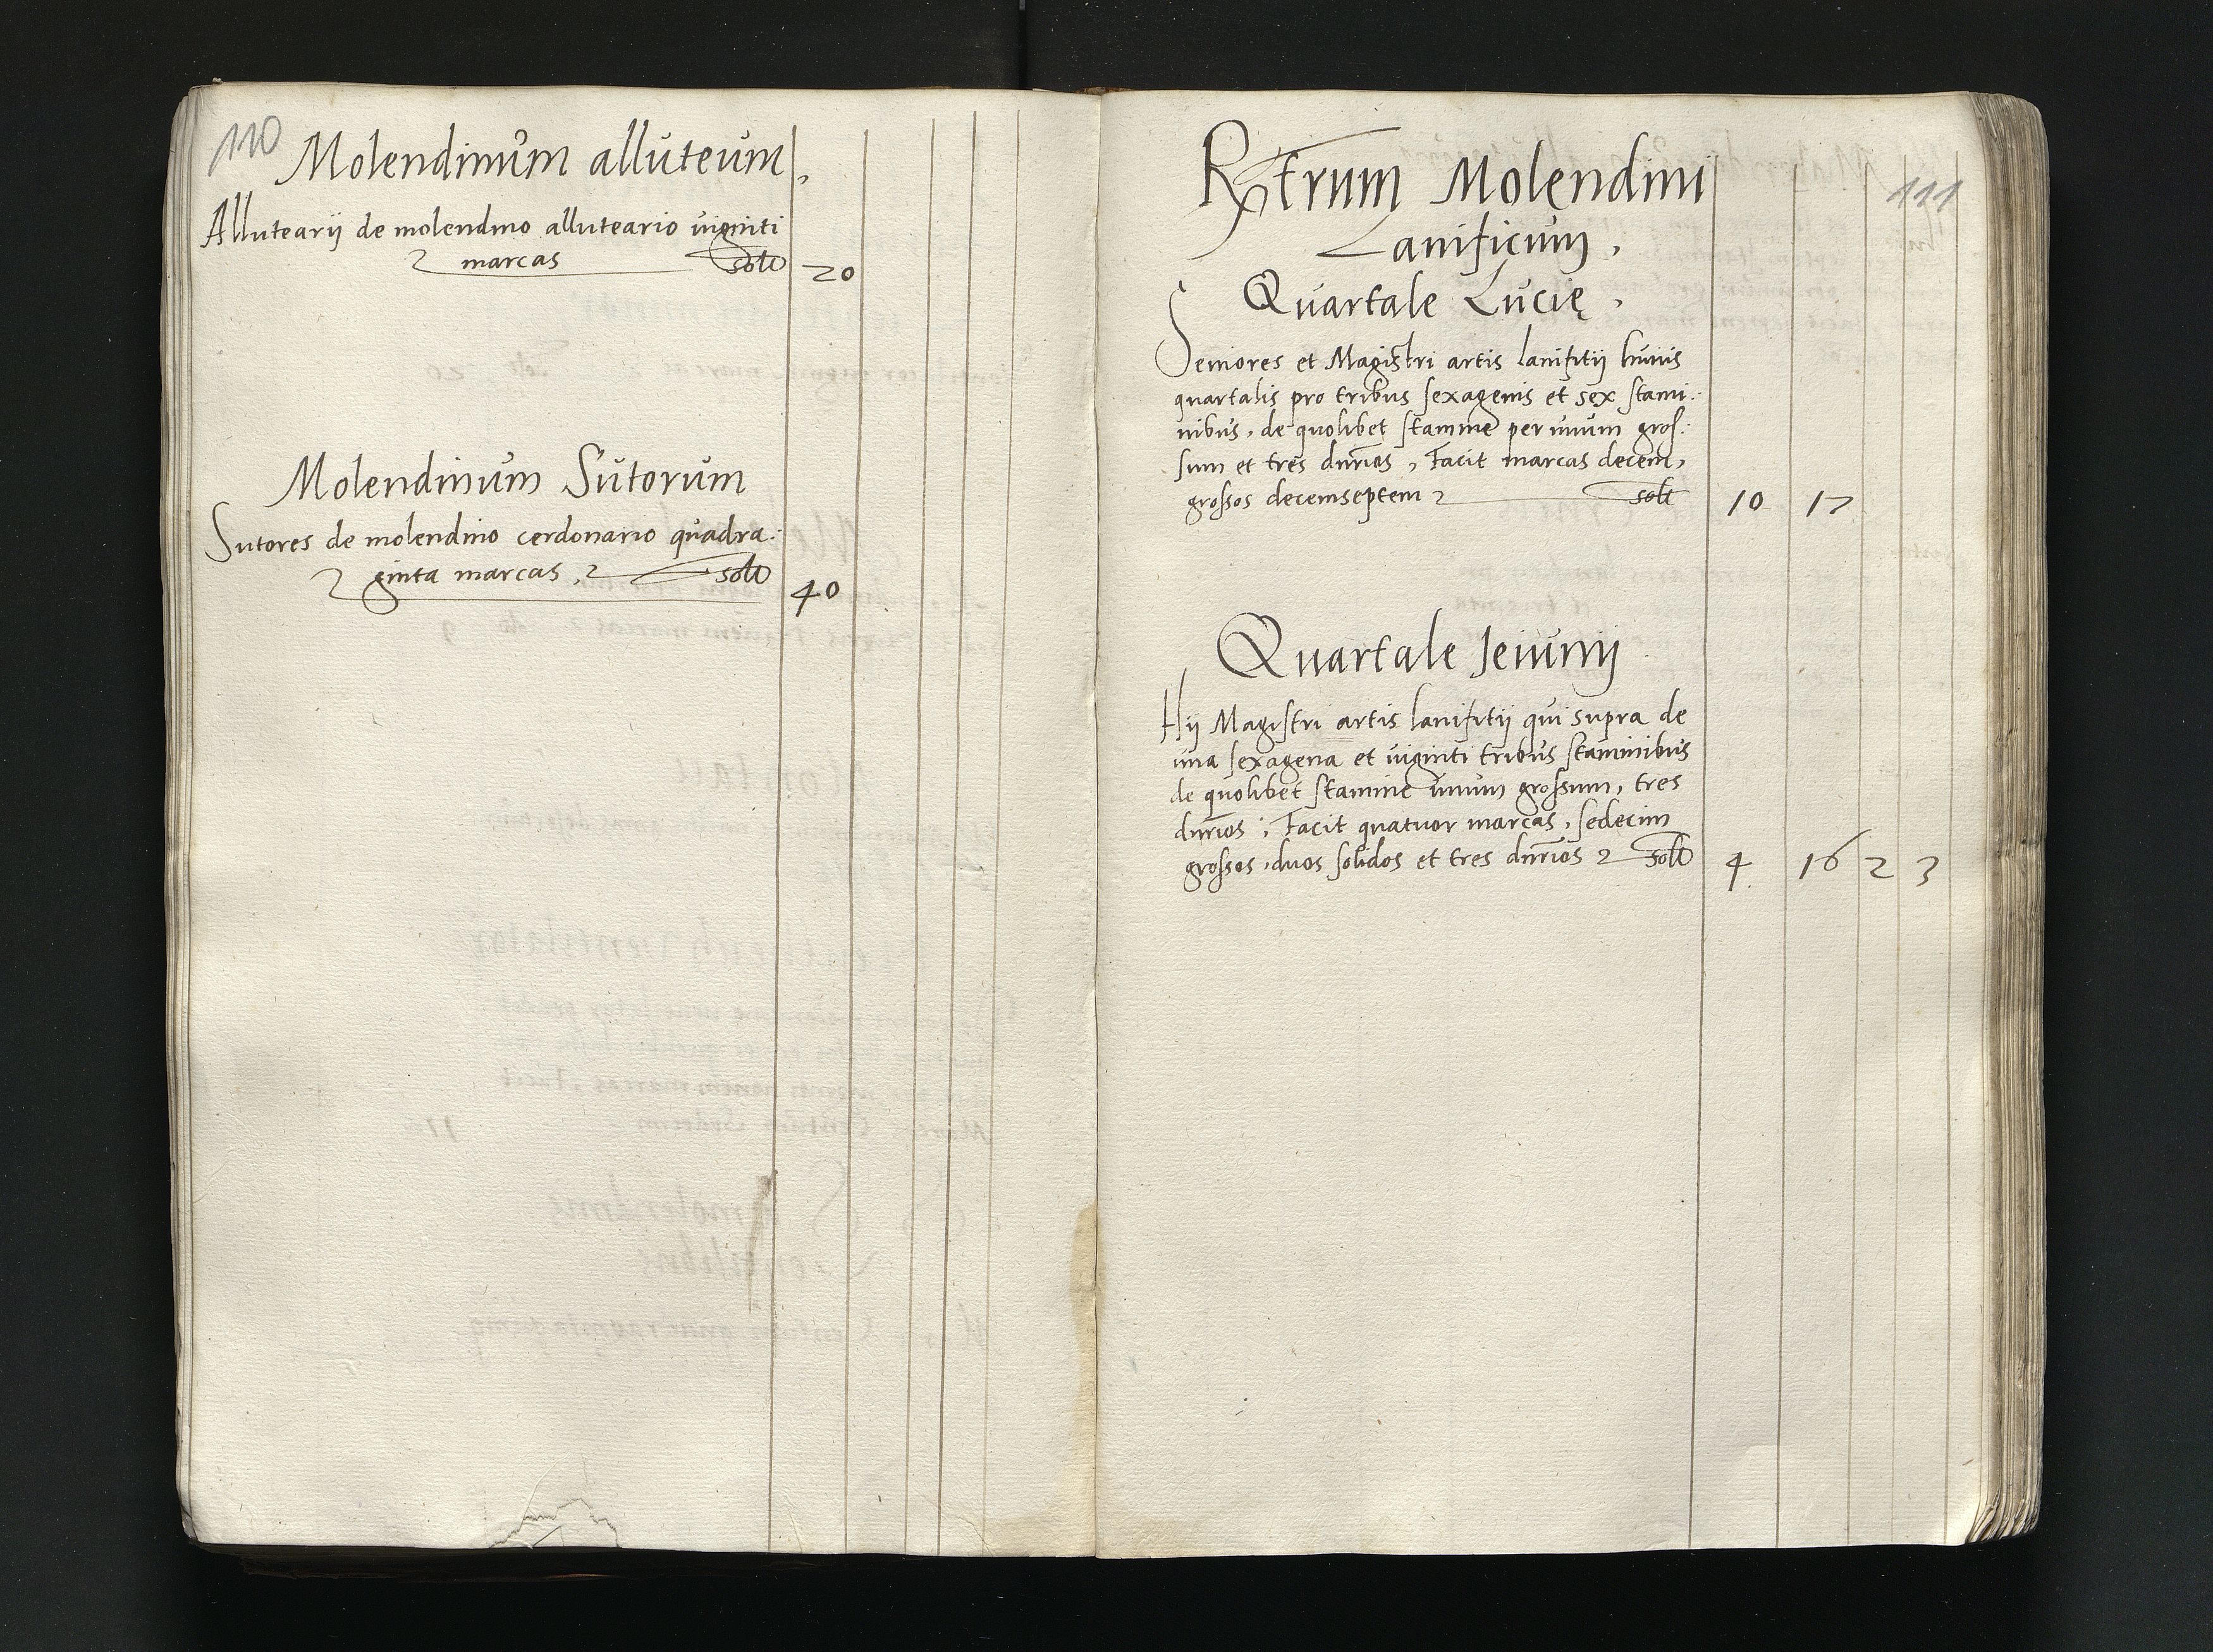 110
Molendinum alluteum,
Allutearij de molendino alluteario uiginti
marcas solt 20
Molendinum Sutorum
Sutores de molendino cerdonario quadra:
ginta marcas, solt 40
111
Rgtrum Molendini
Lanificum,
Quartale Lucię,
Seniores et Magistri artis lanifitij huius
quartalis pro tribus sexagenis et sex stami:
nibus, de quolibet stamine per unum gros:
sum et tres dnrios, Facit marcas decem,
grossos decemseptem solt 10 17
Quartale Jeiunij
Hij Magistri artis lanifitij qui supra de
una sexagena et uiginti tribus staminibus
de quolibet stamine unum grossum, tres
dnrios, Facit quatuor marcas, sedecim
grossos, duos solidos et tres dnrios solt 4 16 2 3